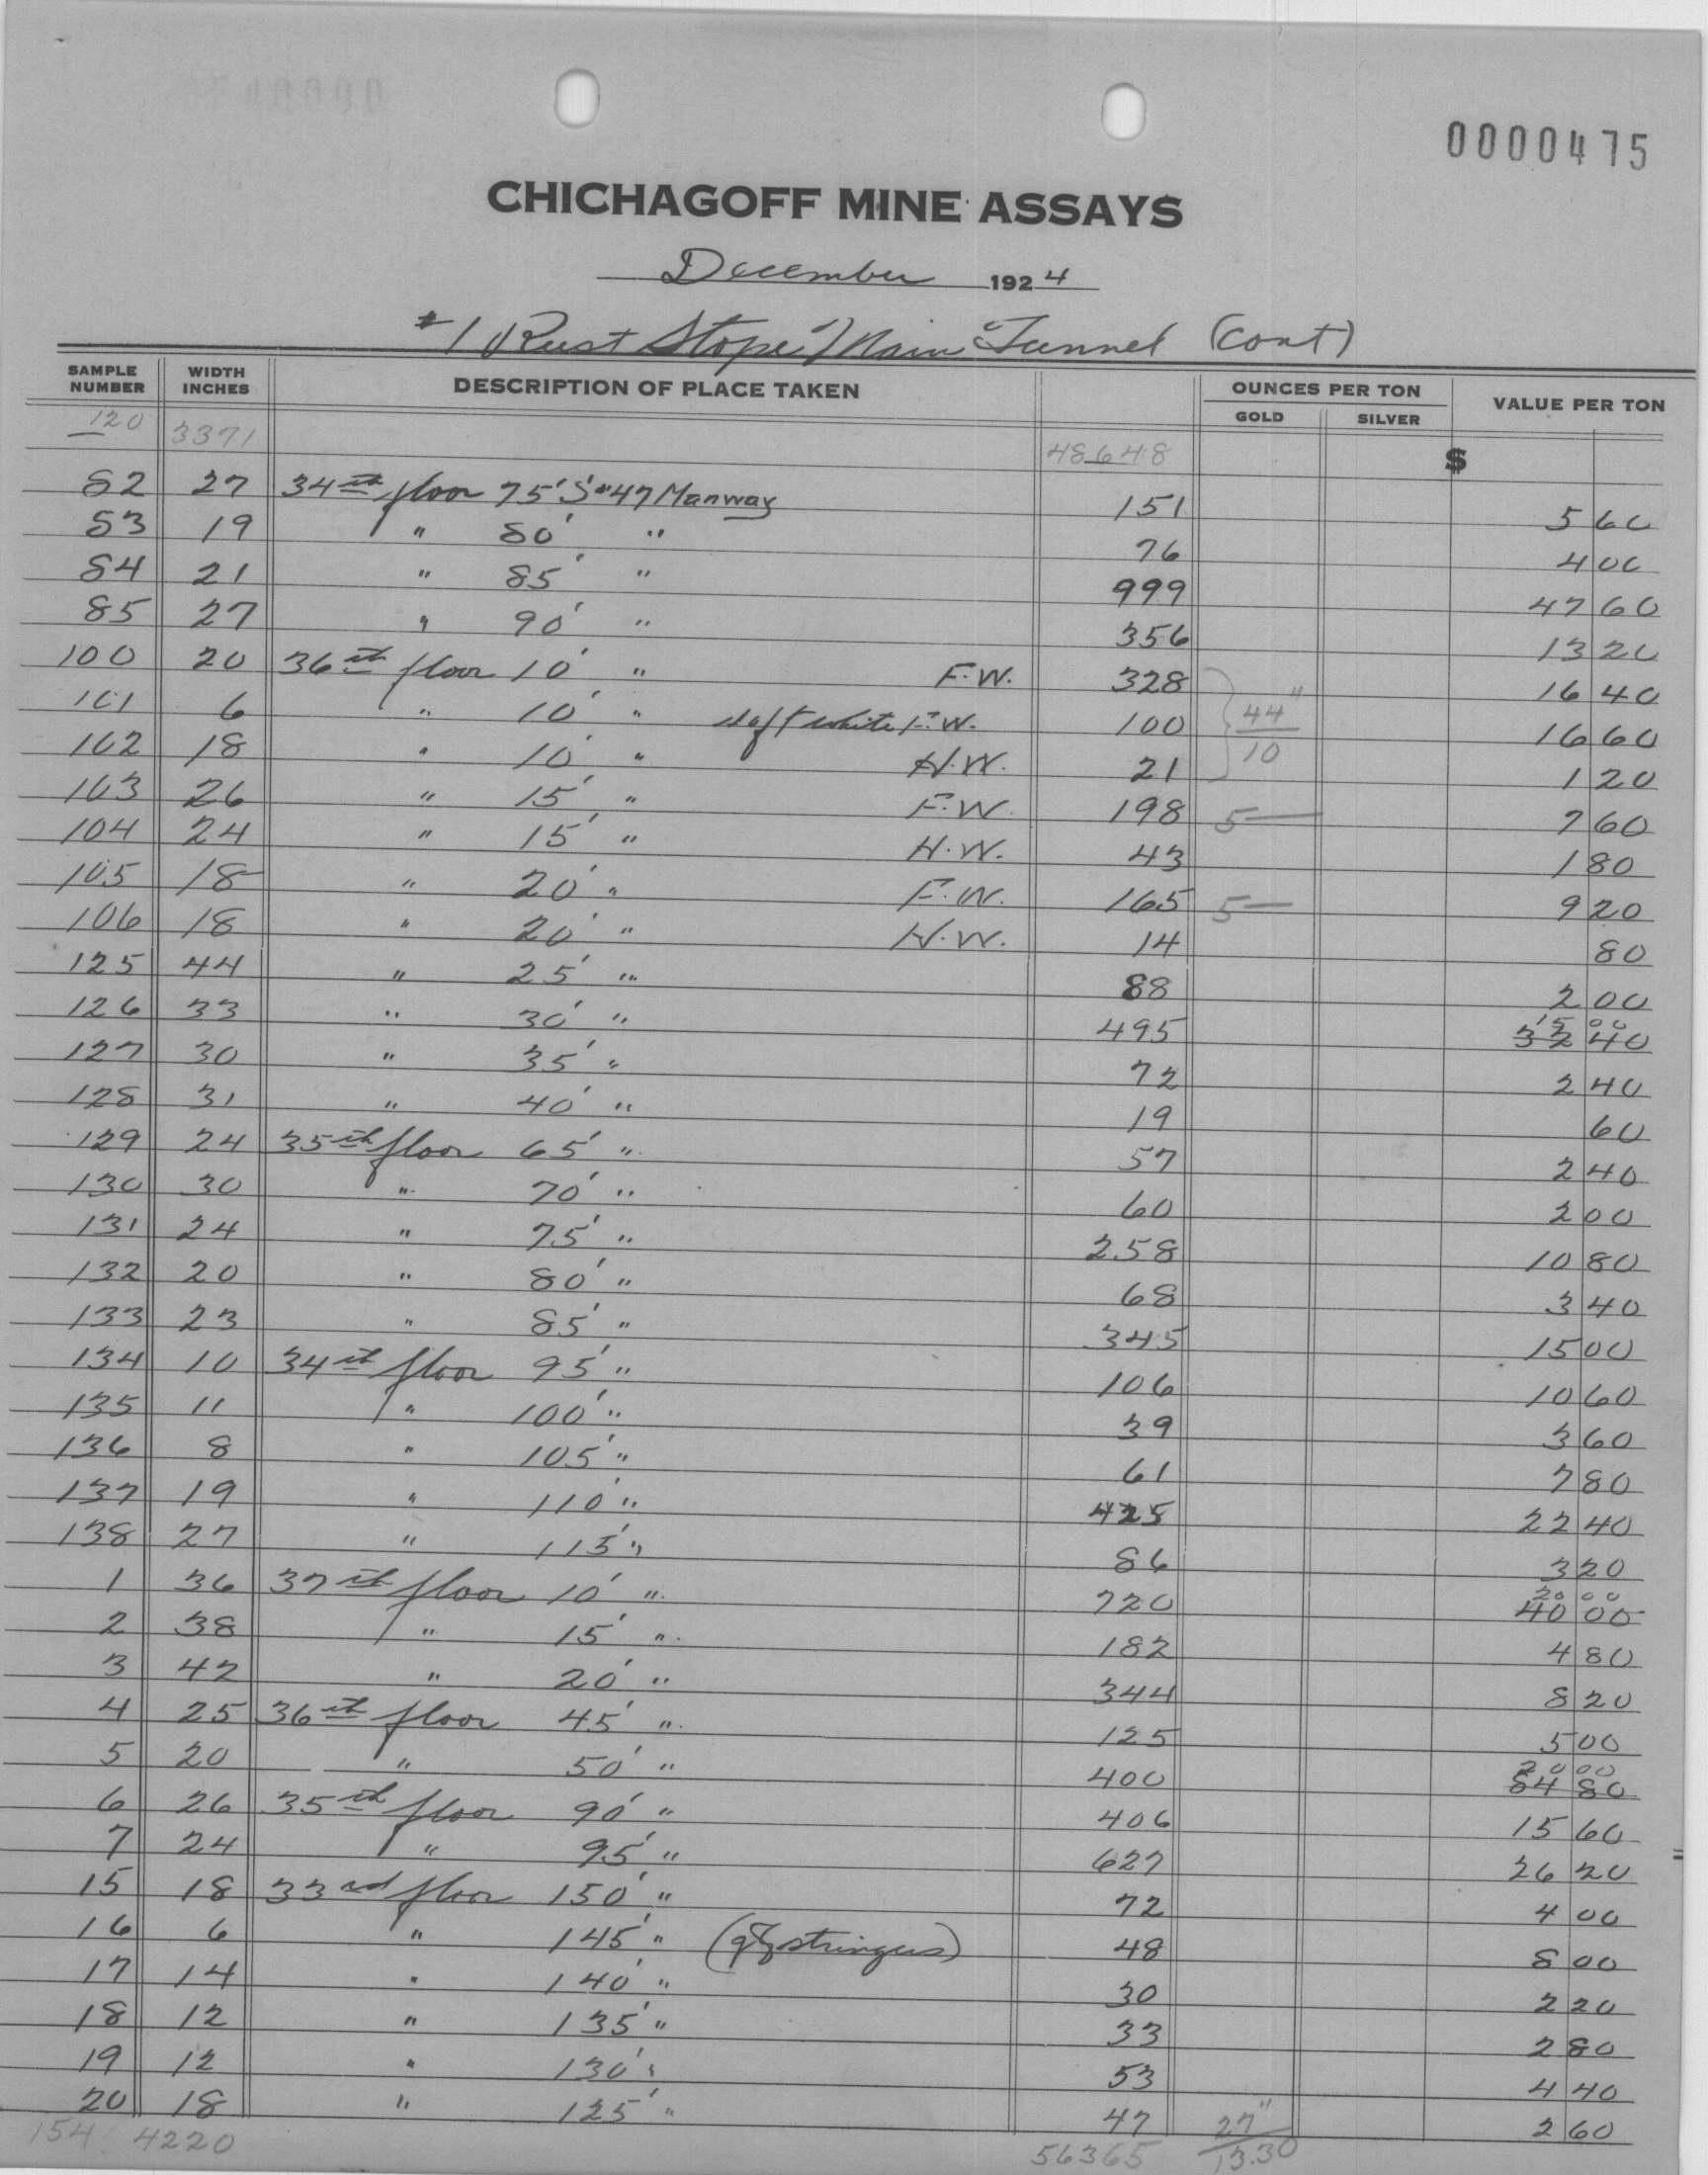 0000475
CHICHAGOFF MINE ASSAYS
December 1924
#1 Rust Stope Main Tunnel (Cont)
SAMPLE NUMBER WIDTH INCHES DESCRIPTION OF PLACE TAKEN OUNCES PER TON GOLD SILVER VALUE PER TON
120 3371 48648 $
82 27 34th floor 75' S #47 Manway 151 5 60
83 19 " 80' " 76 4 00
84 21 " 85' " 999 47 60
85 27 " 90' " 356 13 20
100 20 36th floor 10' " F.W. 328 16 40
101 6 " 10' " soft white F.W. 100 44" 16 60
102 18 " 10' " H.W. 21 10 1 20
103 26 " 15' " F.W. 198 5— 7 60
104 24 " 15' " H.W. 43 1 80
105 18 " 20' " F.W. 165 5— 9 20
106 18 " 20' " H.W. 14 80
125 44 " 25' " 88 2 00
126 33 " 30' " 495 15 00 32 40
127 30 " 35' " 72 2 40
128 31 " 40' " 19 60
129 24 35th floor 65' " 57 2 40
130 30 " 70' " 60 2 00
131 24 " 75' " 258 10 80
132 20 " 80' " 68 3 40
133 23 " 85' " 345 15 00
134 10 34th floor 95' " 106 10 60
135 11 " 100' " 39 3 60
136 8 " 105' " 61 7 80
137 19 " 110' " 425 22 40
138 27 " 115' " 86 3 20
1 36 37th floor 10' " 720 20 00 40 00
2 38 " 15' " 182 4 80
3 42 " 20' " 344 8 20
4 25 36th floor 45' " 125 5 00
5 20 " 50' " 400 20 00 84 80
6 26 35th floor 90' " 406 15 60
7 24 " 95' " 627 26 20
15 18 33rd floor 150' " 72 4 00
16 6 " 145' " (qtz stringers) 48 8 00
17 14 " 140' " 30 2 20
18 12 " 135' " 33 2 80
19 12 " 130' " 53 4 40
20 18 " 125' " 47 27" 2 60
154 4220 56365 13.30